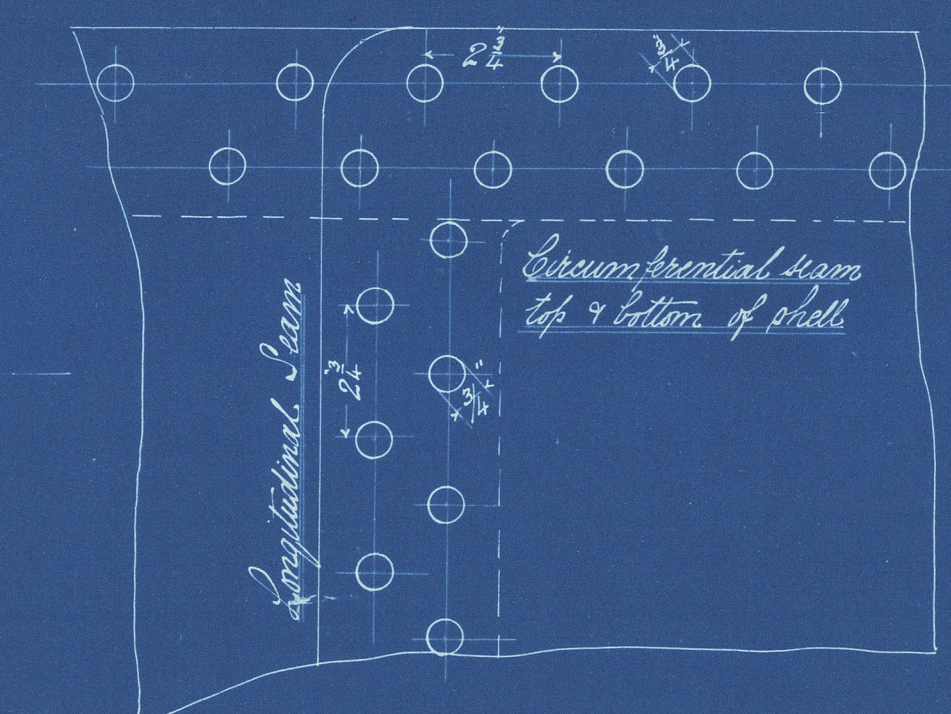 2 3/4"
3/4"
Circumferential seam
top & bottom of shell
Longitudinal Seam
2 3/4"
3/4"